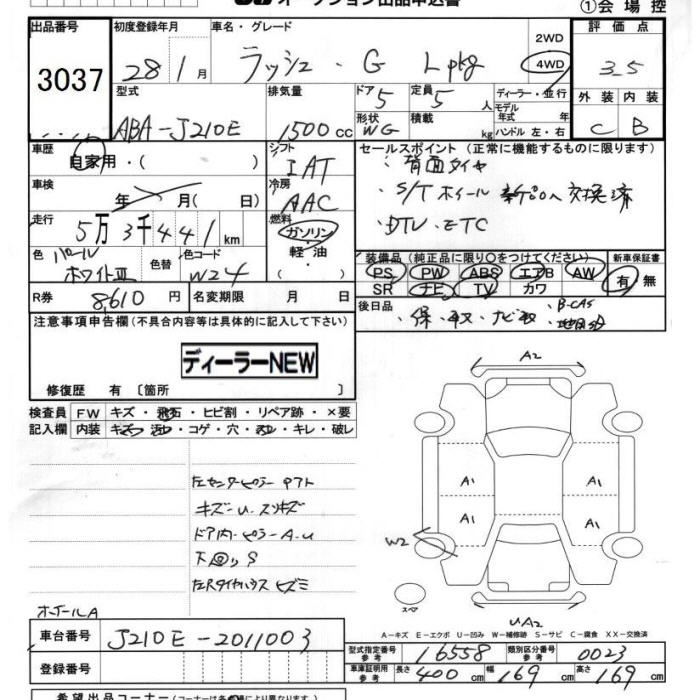 オークション出品申込書
①会場控
出品番号
3037
初度登録年月
28年1月
車名・グレード
ラッシュ・G Lpkg
2WD
4WD
評価点
3.5
型式
ABA-J210E
排気量
1500cc
ドア
5
形状
WG
定員
5人
積載
kg
ディーラー・並行
モデル年式 年
ハンドル 左・右
外装 内装
C B
車歴
自家用・( )
シフト
IAT
車検
年 月( 日)
冷房
AAC
走行
5万3千441km
燃料
ガソリン
軽油
( )
色
パール
ホワイトIII
色替
色コード
W24
R券
8,610円
名変期限 月 日
セールスポイント (正常に機能するものに限ります)
・背面タイヤ
・S/Tホイール
交換済
・DTV・ETC
装備品(純正品に限り○をつけてください)
PS PW ABS エアB AW
SR ナビ TV カワ
新車保証書
有・無
後日品
・保・取・ナビ取・B-CAS
注意事項申告欄(不具合内容等は具体的に記入して下さい)
ディーラーNEW
修復歴 有〔箇所 〕
検査員記入欄
FW キズ・飛石・ヒビ割・リペア跡・×要
内装 キズ・汚・コゲ・穴・・キレ・破レ
左センターピラー
キズ-U・スリキズ
ドア内・ピラーA・U
下回りS
左Rタイヤハウスヒズミ
ホイールA
A2
A1
A1
A1
A1
W2
スペア
UA2
A-キズ E-エクボ U-凹み W-補修跡 S-サビ C-腐食 XX-交換済
車台番号
J210E-2011003
登録番号
型式指定番号参考
16558
類別区分番号参考
0023
車庫証明用参考
長さ 400cm 幅 169cm 高さ 169cm
希望出品コーナー